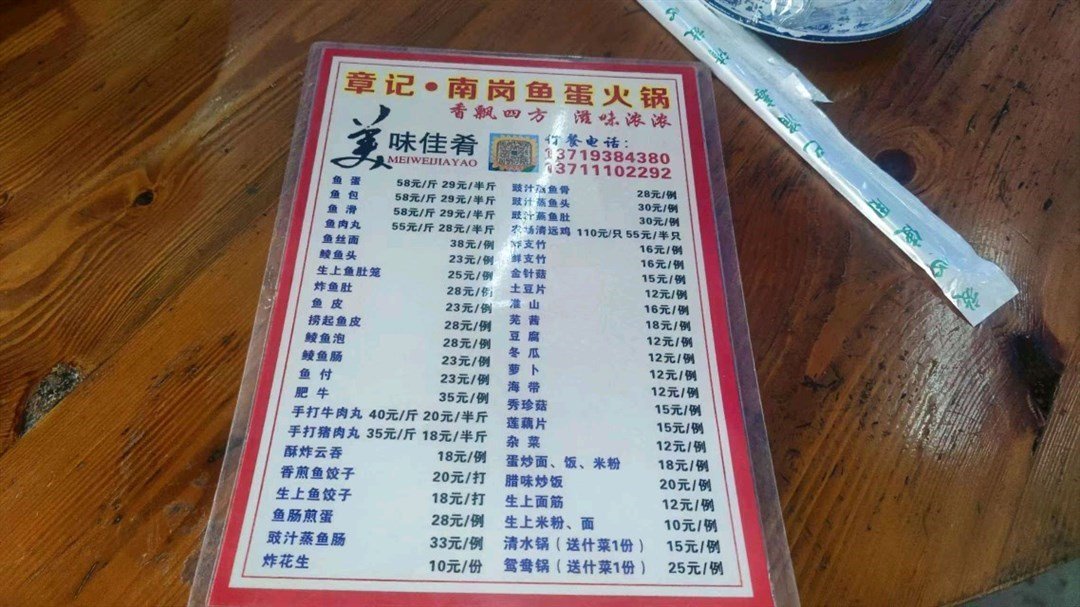 章记•南岗鱼蛋火锅
香飘四方 滋味浓浓
美味佳肴
MEIWEIJIAYAO
订餐电话:
13719384380
13711102292
鱼蛋 58元/斤 29元/半斤
鱼包 58元/斤 29元/半斤
鱼滑 58元/斤 29元/半斤
鱼肉丸 55元/斤 28元/半斤
鱼丝面 38元/例
鲮鱼头 23元/例
生上鱼肚笼 25元/例
炸鱼肚 28元/例
鱼皮 23元/例
捞起鱼皮 28元/例
鲮鱼泡 28元/例
鲮鱼肠 23元/例
鱼付 23元/例
肥牛 35元/例
手打牛肉丸 40元/斤 20元/半斤
手打猪肉丸 35元/斤 18元/半斤
酥炸云吞 18元/例
香煎鱼饺子 20元/打
生上鱼饺子 18元/打
鱼肠煎蛋 28元/例
豉汁蒸鱼肠 33元/例
炸花生 10元/份
豉汁蒸鱼骨 28元/例
豉汁蒸鱼头 30元/例
豉汁蒸鱼肚 30元/例
农场清远鸡 110元/只 55元/半只
炸支竹 16元/例
鲜支竹 16元/例
金针菇 15元/例
土豆片 12元/例
准山 16元/例
芫茜 18元/例
豆腐 12元/例
冬瓜 12元/例
萝卜 12元/例
海带 12元/例
秀珍菇 15元/例
莲藕片 15元/例
杂菜 12元/例
蛋炒面、饭、米粉 18元/例
腊味炒饭 20元/例
生上面筋 12元/例
生上米粉、面 10元/例
清水锅（送什菜1份） 15元/例
鸳鸯锅（送什菜1份） 25元/例